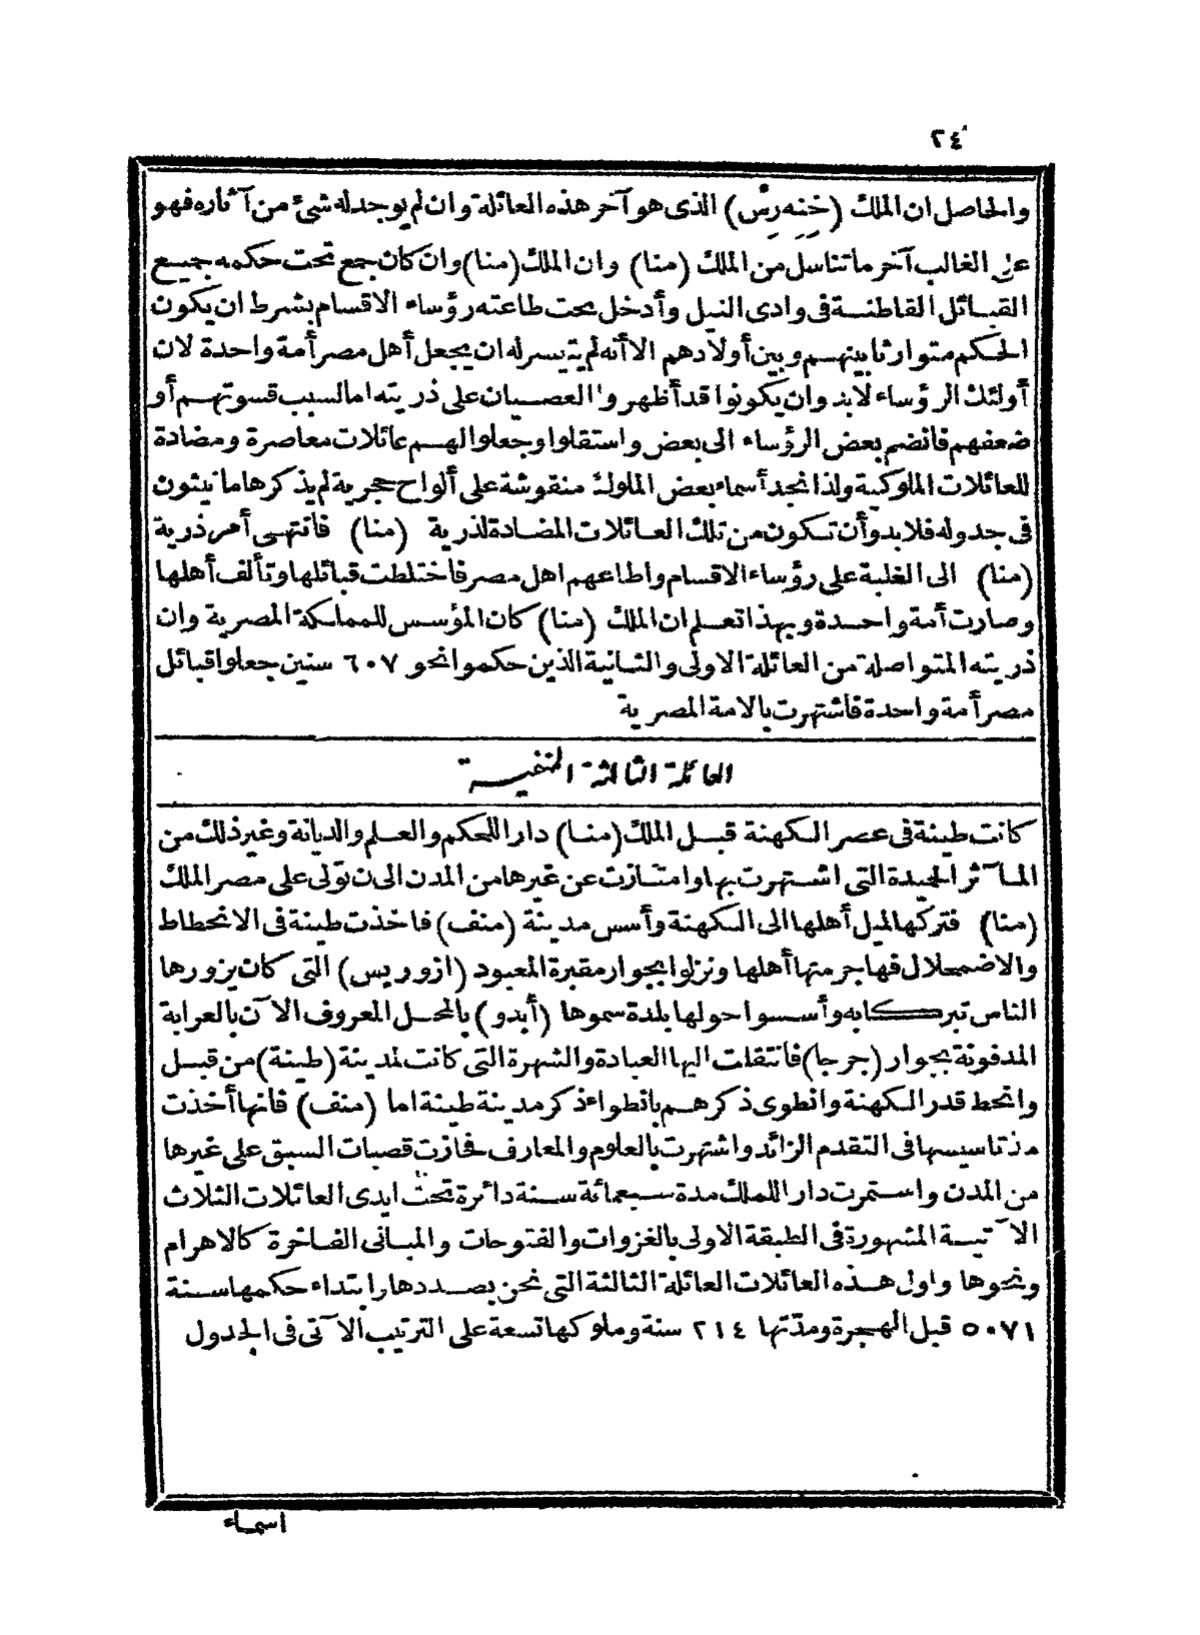 ٢٤
والحاصل ان الملك (خِنِهرِسْ) الذى هو آخر هذه العائلة وان لم يوجد له شئ من آثاره فهو
على الغالب آخر ما تناسل من الملك (منا) وان الملك (منا) وان كان جمع تحت حكمه جميع
القبائل القاطنة فى وادى النيل وأدخل تحت طاعته رؤساء الاقسام بشرط ان يكون
الحكم متوارثا بينهم وبين أولادهم الا أنه لم يتيسر له ان يجعل أهل مصر أمة واحدة لان
أولئك الرؤساء لابد وان يكونوا قد أظهروا العصيان على ذريته اما لسبب قسوتهم أو
ضعفهم فانضم بعض الرؤساء الى بعض واستقلوا وجعلوا لهم عائلات معاصرة ومضادة
للعائلات الملوكية ولذا نجد أسماء بعض الملوك منقوشة على ألواح حجرية لم يذكرها مانيثون
فى جدوله فلابد وأن تكون من تلك العائلات المضادة لذرية (منا) فانتهى أمر ذرية
(منا) الى الغلبة على رؤساء الاقسام واطاعهم اهل مصر فاختلطت قبائلها وتألف أهلها
وصارت أمة واحدة وبهذا تعلم ان الملك (منا) كان المؤسس للمملكة المصرية وان
ذريته المتواصلة من العائلة الاولى والثانية الذين حكموا نحو ٦٠٧ سنين جعلوا قبائل
مصر أمة واحدة فاشتهرت بالامة المصرية
العائلة الثالثة المنفية
كانت طينة فى عصر الكهنة قبل الملك (منا) دارا للحكم والعلم والديانة وغير ذلك من
المآثر الجيدة التى اشتهرت بها وامتازت عن غيرها من المدن الى ن تولى على مصر الملك
(منا) فتركها لميل أهلها الى الكهنة وأسس مدينة (منف) فاخذت طينة فى الانحطاط
والاضمحلال فهاجر منها أهلها ونزلوا بجوار مقبرة المعبود (ازوريس) التى كان يزورها
الناس تبركا به وأسسوا حولها بلدة سموها (أبدو) بالمحل المعروف الآن بالعرابة
المدفونة بجوار (جرجا) فانتقلت اليها العبادة والشهرة التى كانت لمدينة (طينة) من قبل
وانحط قدر الكهنة وانطوى ذكرهم بانطواء ذكر مدينة طينة اما (منف) فانها أخذت
مذ تاسيسها فى التقدم الزائد واشتهرت بالعلوم والمعارف فحازت قصبات السبق على غيرها
من المدن واستمرت دار الملك مدة سبعمائة سنة دائرة تحت ايدى العائلات الثلاث
الآتية المشهورة فى الطبقة الاولى بالغزوات والفتوحات والمبانى الفاخرة كالاهرام
ونحوها واول هذه العائلات العائلة الثالثة التى نحن بصددها وابتداء حكمها سنة
٥٠٧١ قبل الهجرة ومدّتها ٢١٤ سنة وملوكها تسعة على الترتيب الآتى فى الجدول
اسماء